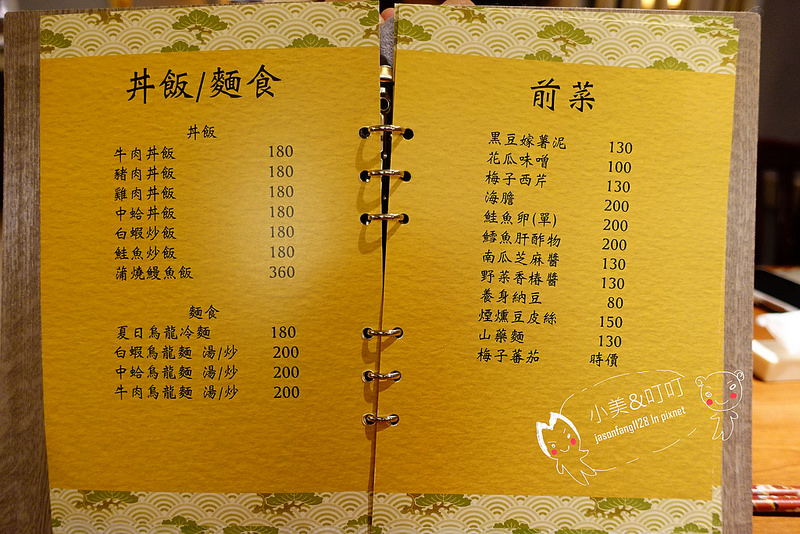 丼飯/麵食
丼飯
牛肉丼飯 180
豬肉丼飯 180
雞肉丼飯 180
中蛤丼飯 180
白蝦炒飯 180
鮭魚炒飯 180
蒲燒鰻魚飯 360
麵食
夏日烏龍冷麵 180
白蝦烏龍麵 湯/炒 200
中蛤烏龍麵 湯/炒 200
牛肉烏龍麵 湯/炒 200
前菜
黑豆嫁薯泥 130
花瓜味噌 100
梅子西芹 130
海膽 200
鮭魚卵(單) 200
鱈魚肝酢物 200
南瓜芝麻醬 130
野菜香椿醬 130
養身納豆 80
煙燻豆皮絲 150
山藥麵 130
梅子蕃茄 時價
小美&叮叮
jasonfang1128 In pixnet